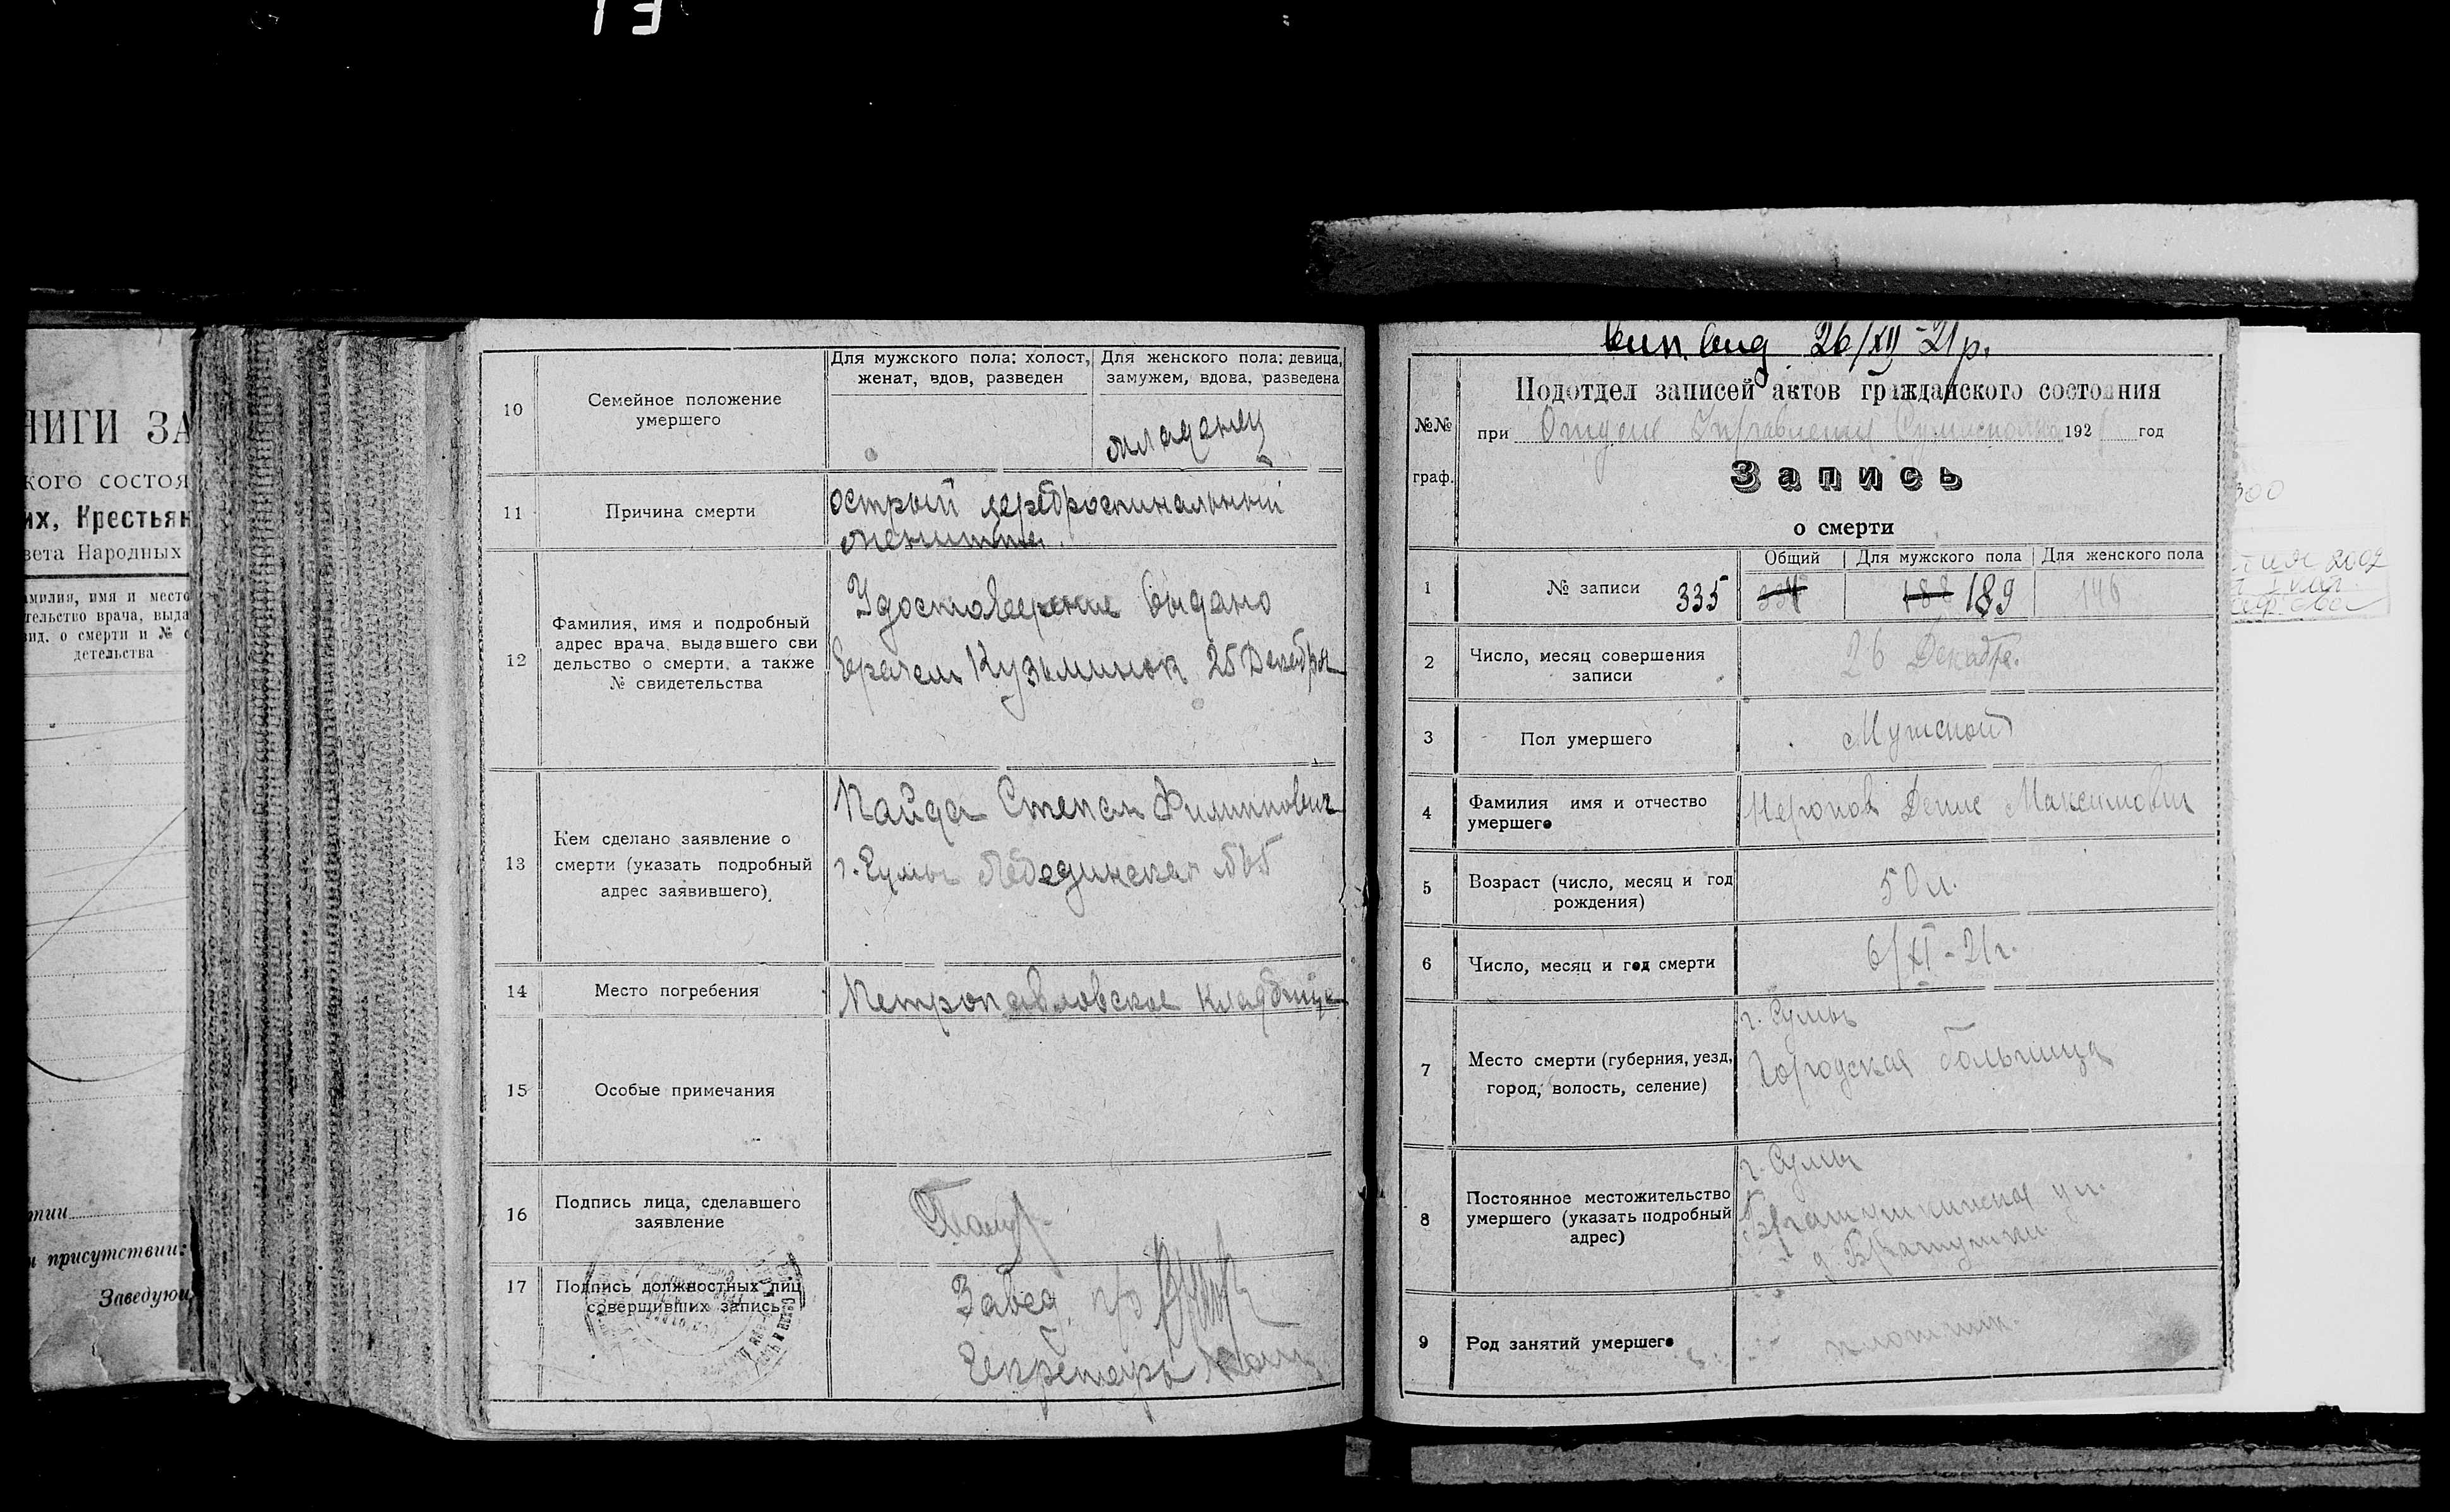 13
НИГИ ЗА
кого состоя
их, Крестьян
вета Народных
амилия, имя и место
тельство врача, выда
вид. о смерти и № с
детельства
присутствии:
Заведующ
10
Семейное положение
умершего
Для мужского пола: холост,
женат, вдов, разведен
Для женского пола: девица,
замужем, вдова, разведена
младенец
11
Причина смерти
острый цереброспинальный
менингит
12
Фамилия, имя и подробный
адрес врача, выдавшего сви
дельство о смерти, а также
№ свидетельства
Удостоверение выдано
врачем Кузьминок 25 Декабря
13
Кем сделано заявление о
смерти (указать подробный
адрес заявившего)
Пайда Степан Филиппович
г. Сумы Лебединская №65
14
Место погребения
Петропавловское кладбище
15
Особые примечания
16
Подпись лица, сделавшего
заявление
17
Подпись должностных лиц
совершивших запись
Завед. п/о
Секретарь
26/XII-21р.
№№
граф.
Подотдел записей актов гражданского состояния
при Отделе Управления 1921 год
Запись
о смерти
1
№ записи 335
Общий
Для мужского пола
Для женского пола
334
188 189
146
2
Число, месяц совершения
записи
26 Декабря.
3
Пол умершего
Мужской
4
Фамилия имя и отчество
умершего
Неронов Денис Максимович
5
Возраст (число, месяц и год
рождения)
50 л.
6
Число, месяц и год смерти
6/XI-21г.
7
Место смерти (губерния, уезд,
город, волость, селение)
г. Сумы
Городская больница
8
Постоянное местожительство
умершего (указать подробный
адрес)
г. Сумы
ул.
9
Род занятий умершего
плотник.